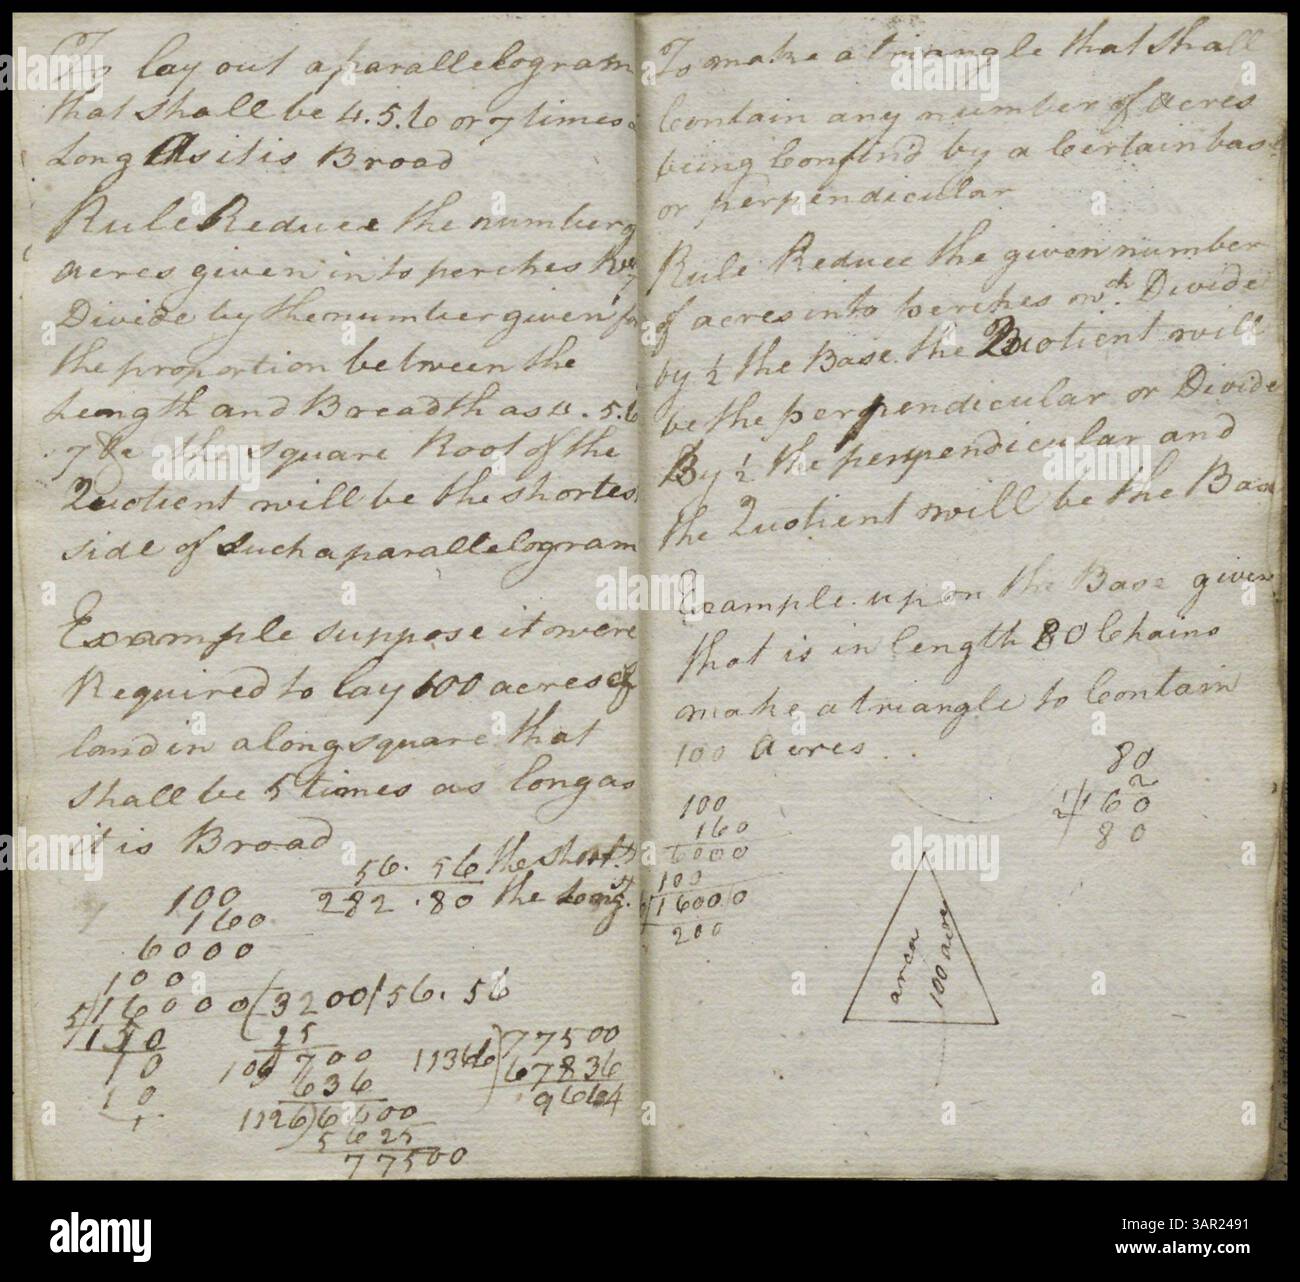 To lay out a parallelogram
that shall be 4.5.6 or 7 times as
Long As it is Broad
Rule Reduce the number of
acres given into perches
Divide by the number given for
the proportion between the
Length and Breadth as 4.5.6
7 &c the square Root of the
Quotient will be the shortes
side of such a parallelogram
Example suppose it were
Required to lay 100 acres of
land in a long square that
shall be 5 times as long as
it is Broad
56. 56 the short.st
282.80 the Long.st
100
160
6000
100
5/16000(3200/56.56
150
10
10
25
106 700
636
1126)6400
5625
77500
11366)77500
67836
9664
To make a triangle that shall
Contain any number of acres
being Confin'd by a Certain base
or perpendicular
Rule Reduce the given number
of acres into perches Divide
by ½ the Base the Quotient will
be the perpendicular or Divide
By ½ the perpendicular and
the Quotient will be the Base
Example upon the Base given
that is in length 80 Chains
make a triangle to Contain
100 acres
80
2
½/160
80
100
160
6000
100
16000
200
area
100 acres
alamy
Image ID: 3AR2491
www.alamy.com